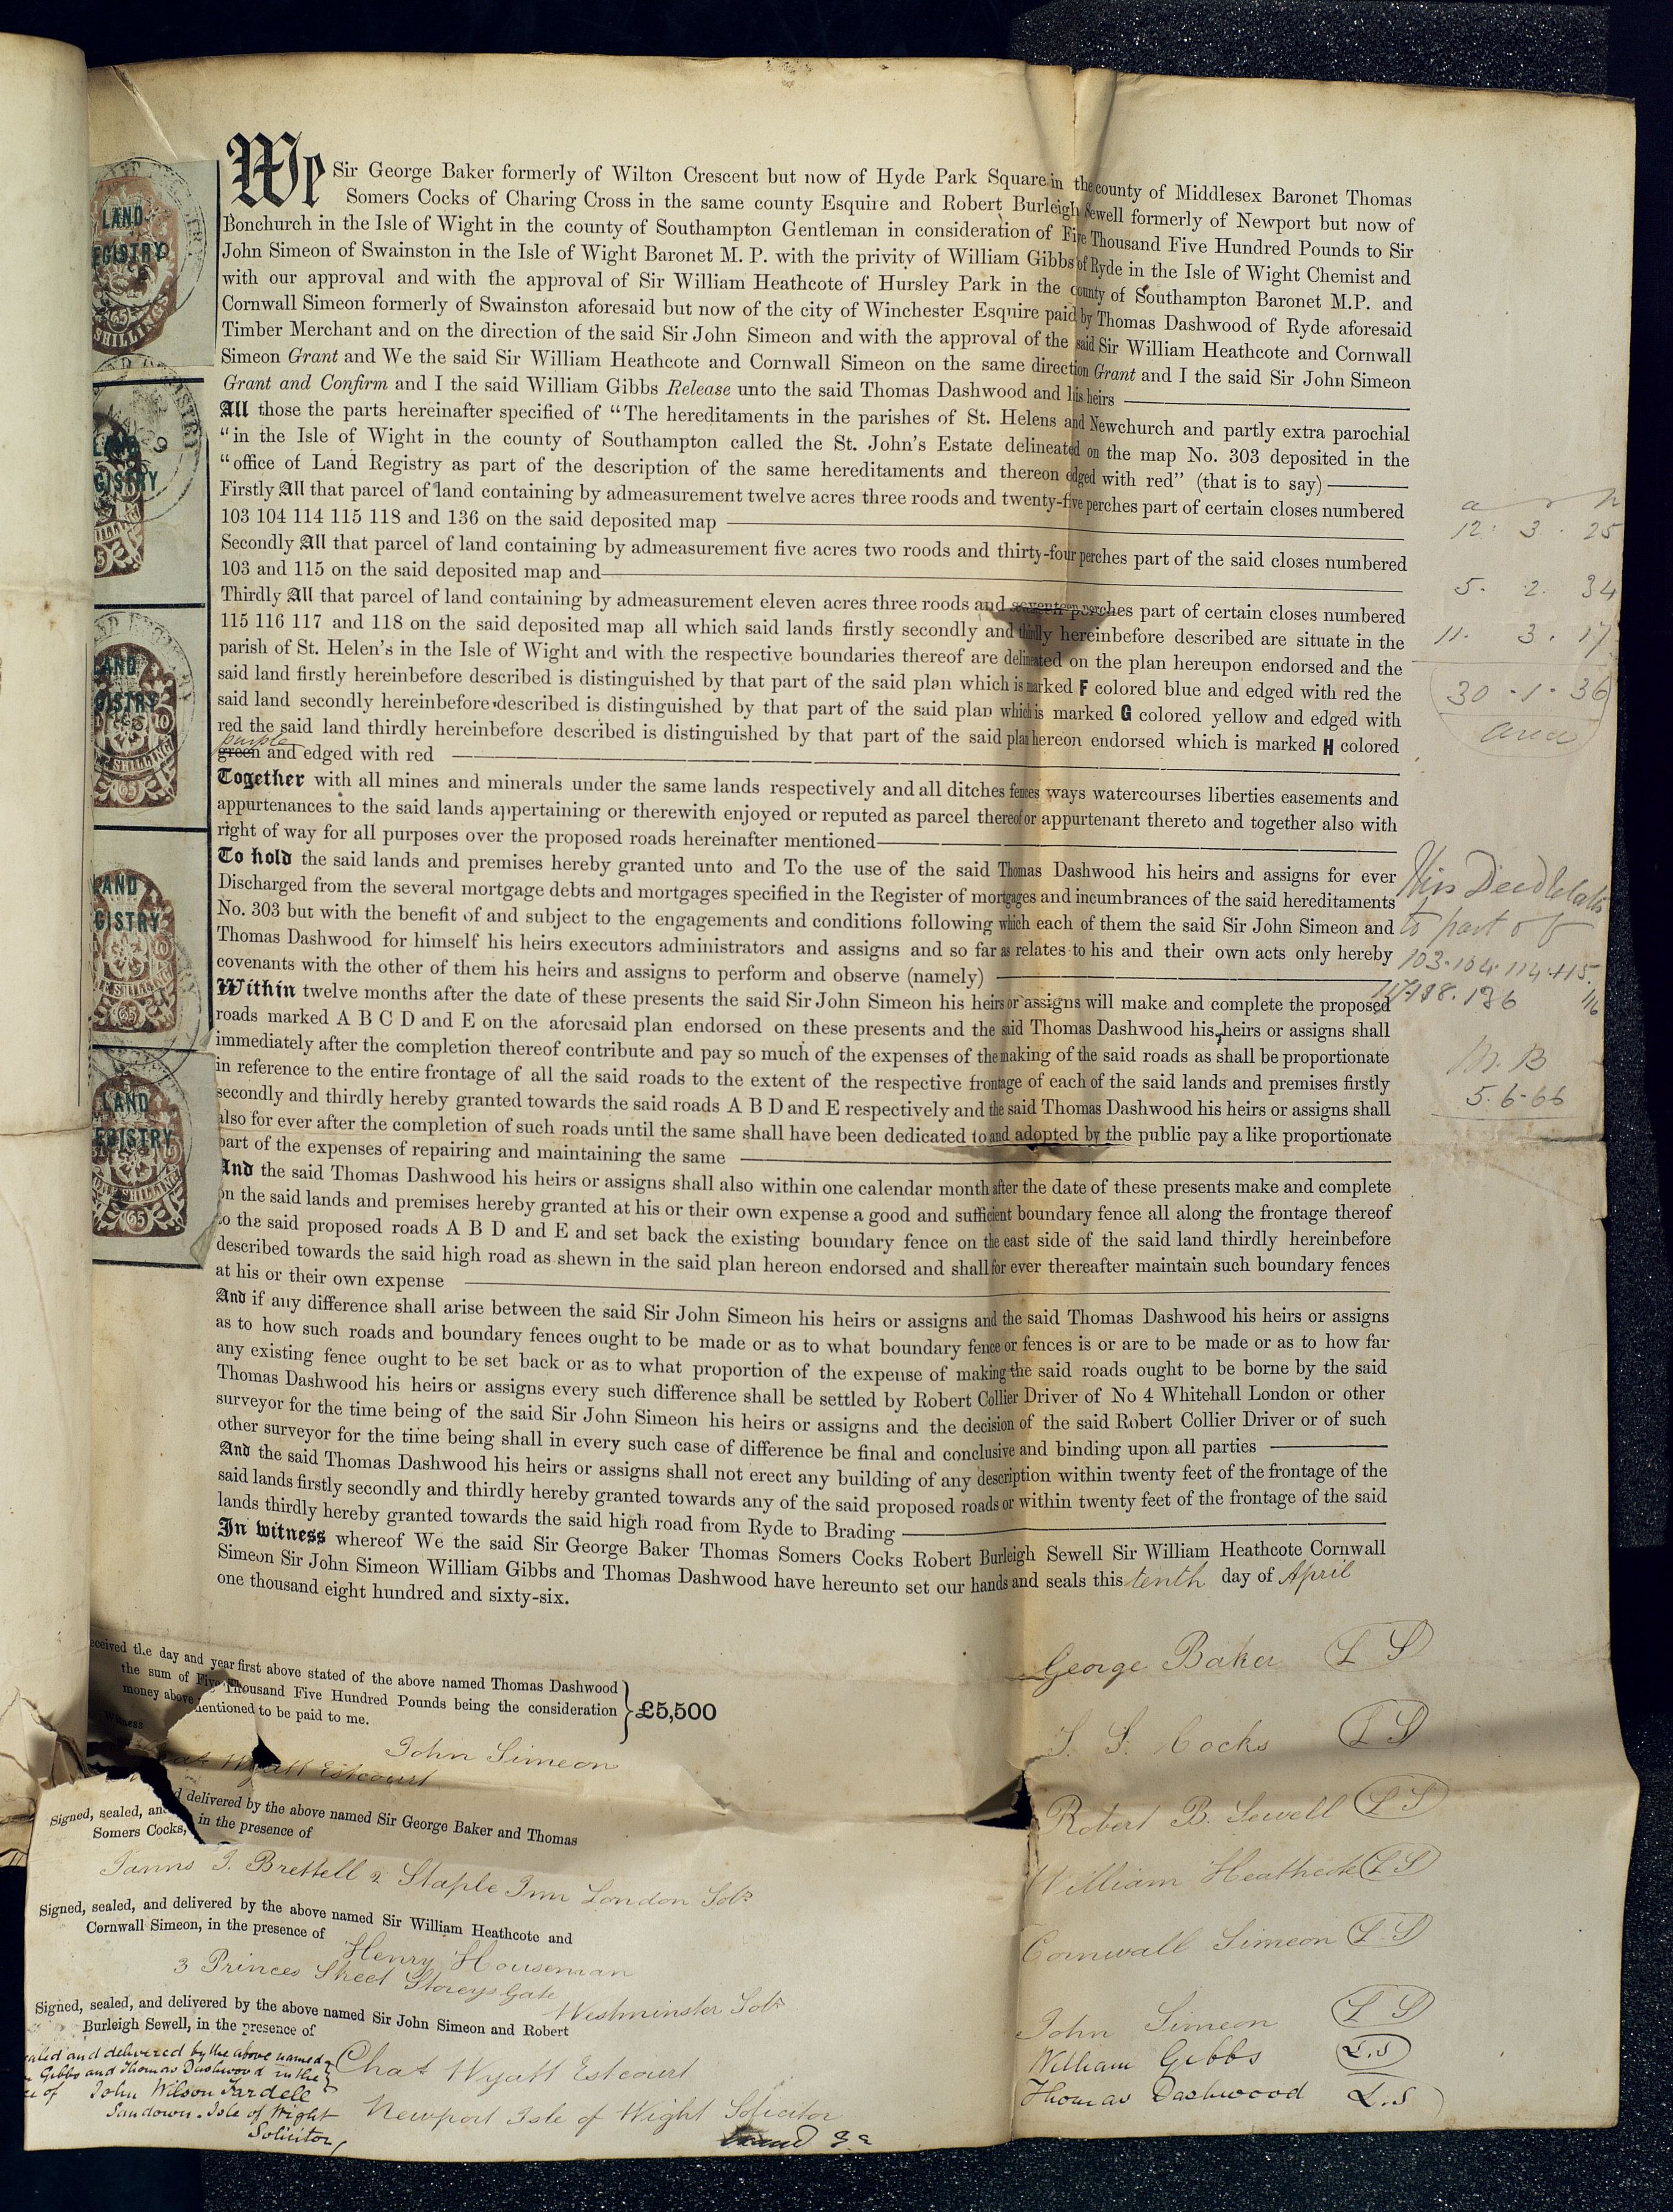 We Sir George Baker formerly of Wilton Crescent but now of Hyde Park Square in the county of Middlesex Baronet Thomas
Somers Cocks of Charing Cross in the same county Esquire and Robert Burleigh Sewell formerly of Newport but now of
Bonchurch in the Isle of Wight in the county of Southampton Gentleman in consideration of Five Thousand Five Hundred Pounds to Sir
John Simeon of Swainston in the Isle of Wight Baronet M. P. with the privity of William Gibbs of Ryde in the Isle of Wight Chemist and
with our approval and with the approval of Sir William Heathcote of Hursley Park in the county of Southampton Baronet M.P. and
Cornwall Simeon formerly of Swainston aforesaid but now of the city of Winchester Esquire paid by Thomas Dashwood of Ryde aforesaid
Timber Merchant and on the direction of the said Sir John Simeon and with the approval of the said Sir William Heathcote and Cornwall
Simeon Grant and We the said Sir William Heathcote and Cornwall Simeon on the same direction Grant and I the said Sir John Simeon
Grant and Confirm and I the said William Gibbs Release unto the said Thomas Dashwood and his heirs
All those the parts hereinafter specified of "The hereditaments in the parishes of St. Helens and Newchurch and partly extra parochial
"in the Isle of Wight in the county of Southampton called the St. John's Estate delineated on the map No. 303 deposited in the
"office of Land Registry as part of the description of the same hereditaments and thereon edged with red" (that is to say)
Firstly All that parcel of land containing by admeasurement twelve acres three roods and twenty-five perches part of certain closes numbered
103 104 114 115 118 and 136 on the said deposited map
Secondly All that parcel of land containing by admeasurement five acres two roods and thirty-four perches part of the said closes numbered
103 and 115 on the said deposited map and
Thirdly All that parcel of land containing by admeasurement eleven acres three roods and seventeen perches part of certain closes numbered
115 116 117 and 118 on the said deposited map all which said lands firstly secondly and thirdly hereinbefore described are situate in the
parish of St. Helen's in the Isle of Wight and with the respective boundaries thereof are delineated on the plan hereupon endorsed and the
said land firstly hereinbefore described is distinguished by that part of the said plan which is marked F colored blue and edged with red the
said land secondly hereinbefore described is distinguished by that part of the said plan which is marked G colored yellow and edged with
red the said land thirdly hereinbefore described is distinguished by that part of the said plan hereon endorsed which is marked H colored
purple
green and edged with red
Together with all mines and minerals under the same lands respectively and all ditches fences ways watercourses liberties easements and
appurtenances to the said lands appertaining or therewith enjoyed or reputed as parcel thereof or appurtenant thereto and together also with
right of way for all purposes over the proposed roads hereinafter mentioned
To hold the said lands and premises hereby granted unto and To the use of the said Thomas Dashwood his heirs and assigns for ever
Discharged from the several mortgage debts and mortgages specified in the Register of mortgages and incumbrances of the said hereditaments
No. 303 but with the benefit of and subject to the engagements and conditions following which each of them the said Sir John Simeon and
Thomas Dashwood for himself his heirs executors administrators and assigns and so far as relates to his and their own acts only hereby
covenants with the other of them his heirs and assigns to perform and observe (namely)
Within twelve months after the date of these presents the said Sir John Simeon his heirs or assigns will make and complete the proposed
roads marked A B C D and E on the aforesaid plan endorsed on these presents and the said Thomas Dashwood his heirs or assigns shall
immediately after the completion thereof contribute and pay so much of the expenses of the making of the said roads as shall be proportionate
in reference to the entire frontage of all the said roads to the extent of the respective frontage of each of the said lands and premises firstly
secondly and thirdly hereby granted towards the said roads A B D and E respectively and the said Thomas Dashwood his heirs or assigns shall
also for ever after the completion of such roads until the same shall have been dedicated to and adopted by the public pay a like proportionate
part of the expenses of repairing and maintaining the same
And the said Thomas Dashwood his heirs or assigns shall also within one calendar month after the date of these presents make and complete
on the said lands and premises hereby granted at his or their own expense a good and sufficient boundary fence all along the frontage thereof
to the said proposed roads A B D and E and set back the existing boundary fence on the east side of the said land thirdly hereinbefore
described towards the said high road as shewn in the said plan hereon endorsed and shall for ever thereafter maintain such boundary fences
at his or their own expense
And if any difference shall arise between the said Sir John Simeon his heirs or assigns and the said Thomas Dashwood his heirs or assigns
as to how such roads and boundary fences ought to be made or as to what boundary fence or fences is or are to be made or as to how far
any existing fence ought to be set back or as to what proportion of the expense of making the said roads ought to be borne by the said
Thomas Dashwood his heirs or assigns every such difference shall be settled by Robert Collier Driver of No 4 Whitehall London or other
surveyor for the time being of the said Sir John Simeon his heirs or assigns and the decision of the said Robert Collier Driver or of such
other surveyor for the time being shall in every such case of difference be final and conclusive and binding upon all parties
And the said Thomas Dashwood his heirs or assigns shall not erect any building of any description within twenty feet of the frontage of the
said lands firstly secondly and thirdly hereby granted towards any of the said proposed roads or within twenty feet of the frontage of the said
lands thirdly hereby granted towards the said high road from Ryde to Brading
In witness whereof We the said Sir George Baker Thomas Somers Cocks Robert Burleigh Sewell Sir William Heathcote Cornwall
Simeon Sir John Simeon William Gibbs and Thomas Dashwood have hereunto set our hands and seals this tenth day of April
one thousand eight hundred and sixty-six.
eceived the day and year first above stated of the above named Thomas Dashwood
the sum of Five Thousand Five Hundred Pounds being the consideration
money above mentioned to be paid to me.
£5,500
Witness
John Simeon
Wyatt Estcourt
Signed, sealed, and delivered by the above named Sir George Baker and Thomas
Somers Cocks, in the presence of
J. Brettell 2 Staple Inn London Solr
Signed, sealed, and delivered by the above named Sir William Heathcote and
Cornwall Simeon, in the presence of
Henry Houseman
3 Princes Street Storeys Gate
Westminster Solr
Signed, sealed, and delivered by the above named Sir John Simeon and Robert
Burleigh Sewell, in the presence of
Chas Wyatt Estcourt
Newport Isle of Wight Solicitor
ealed and delivered by the above named
Gibbs and Thomas Dashwood in the
ce of John Wilson Fardell
Sandown. Isle of Wight
Solicitor
George Baker L S
T. S. Cocks L S
Robert B. Sewell L S
William Heathcote L S
Cornwall Simeon L. S
John Simeon L S
William Gibbs L.S
Thomas Dashwood L.S
a r p
12. 3. 25
5. 2. 34
11. 3. 17
30. 1. 36
area
This Deed relates
to part of
103. 104. 114. 115. 116
117. 118. 136
M. B
5.6.66
LAND
EGISTRY
SHILLINGS
65
LAND
GISTRY
65
LAND
GISTRY
65
LAND
GISTRY
65
LAND
EGISTRY
65